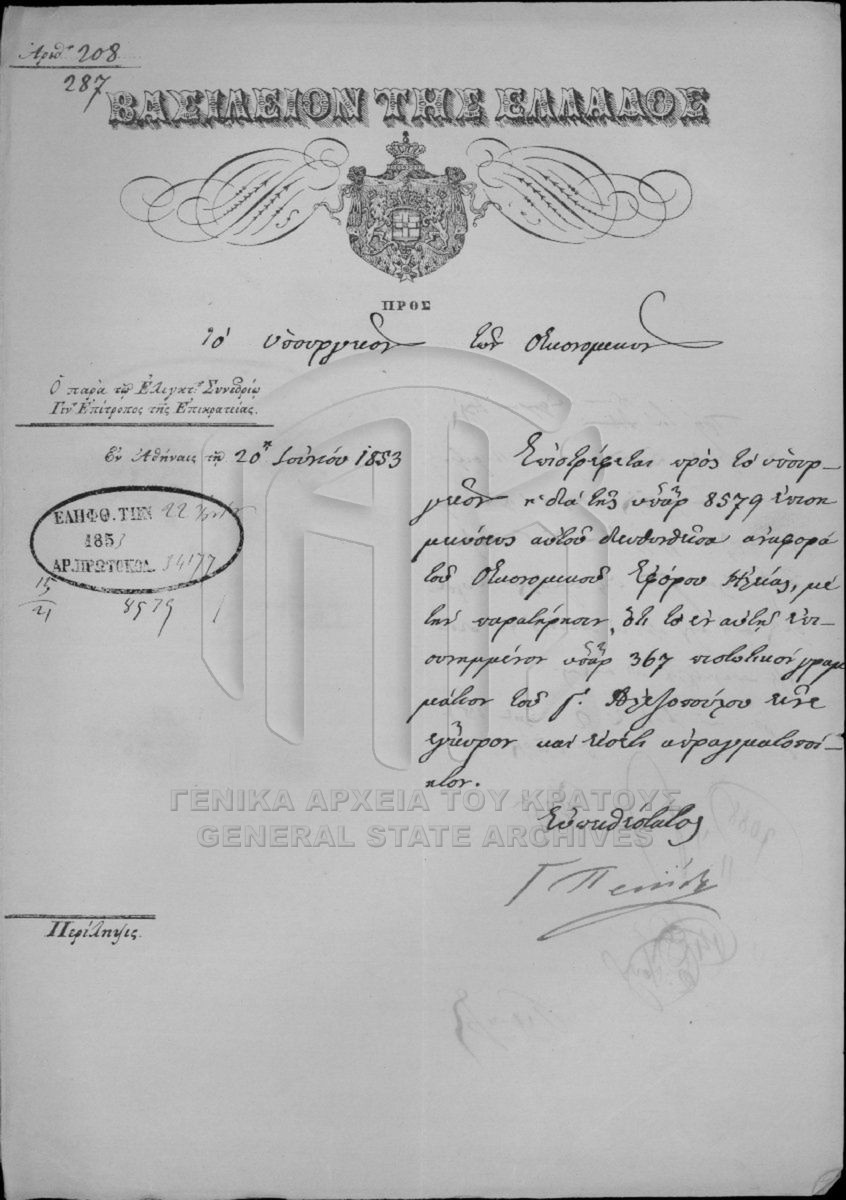 Ἀριθ. 208
287
ΒΑΣΙΛΕΙΟΝ ΤΗΣ ΕΛΛΑΔΟΣ
ΠΡΟΣ
τὸ Ὑπουργεῖον τῶν Οἰκονομικῶν
Ὁ παρὰ τῷ Ἐλεγκτ. Συνεδρίῳ
Γεν. Ἐπίτροπος τῆς Ἐπικρατείας.
Ἐν Ἀθήναις τῇ 20 Ἰουνίου 1853
ΕΛΗΦΘ. ΤΗΝ 22
1853
ΑΡ. ΠΡΩΤΟΚΟΛ. 14177
15
21
8579
Ἐπιστρέφεται πρὸς τὸ ὑπουρ-
γεῖον ἡ διὰ τῆς ὑπ' ἀρ 8579 ἐπιση
μειώσεως αὐτοῦ διευθυνθεῖσα ἀναφορὰ
τοῦ Οἰκονομικοῦ Ἐφόρου Ἠλείας, μὲ
τὴν παρατήρησιν, ὅτι τὸ ἐν αὐτῇ ἐπι-
συνημμένον ὑπ' ἀρ 367 πιστωτικὸν γραμ
μάτιον τοῦ Γ. Ἀλεξοπούλου εἶνε
ἔγκυρον καὶ εἰσέτι ἀπραγματοποί-
ητον.
Εὐπειθέστατος
Γ
Περίληψις.
ΓΕΝΙΚΑ ΑΡΧΕΙΑ ΤΟΥ ΚΡΑΤΟΥΣ
GENERAL STATE ARCHIVES